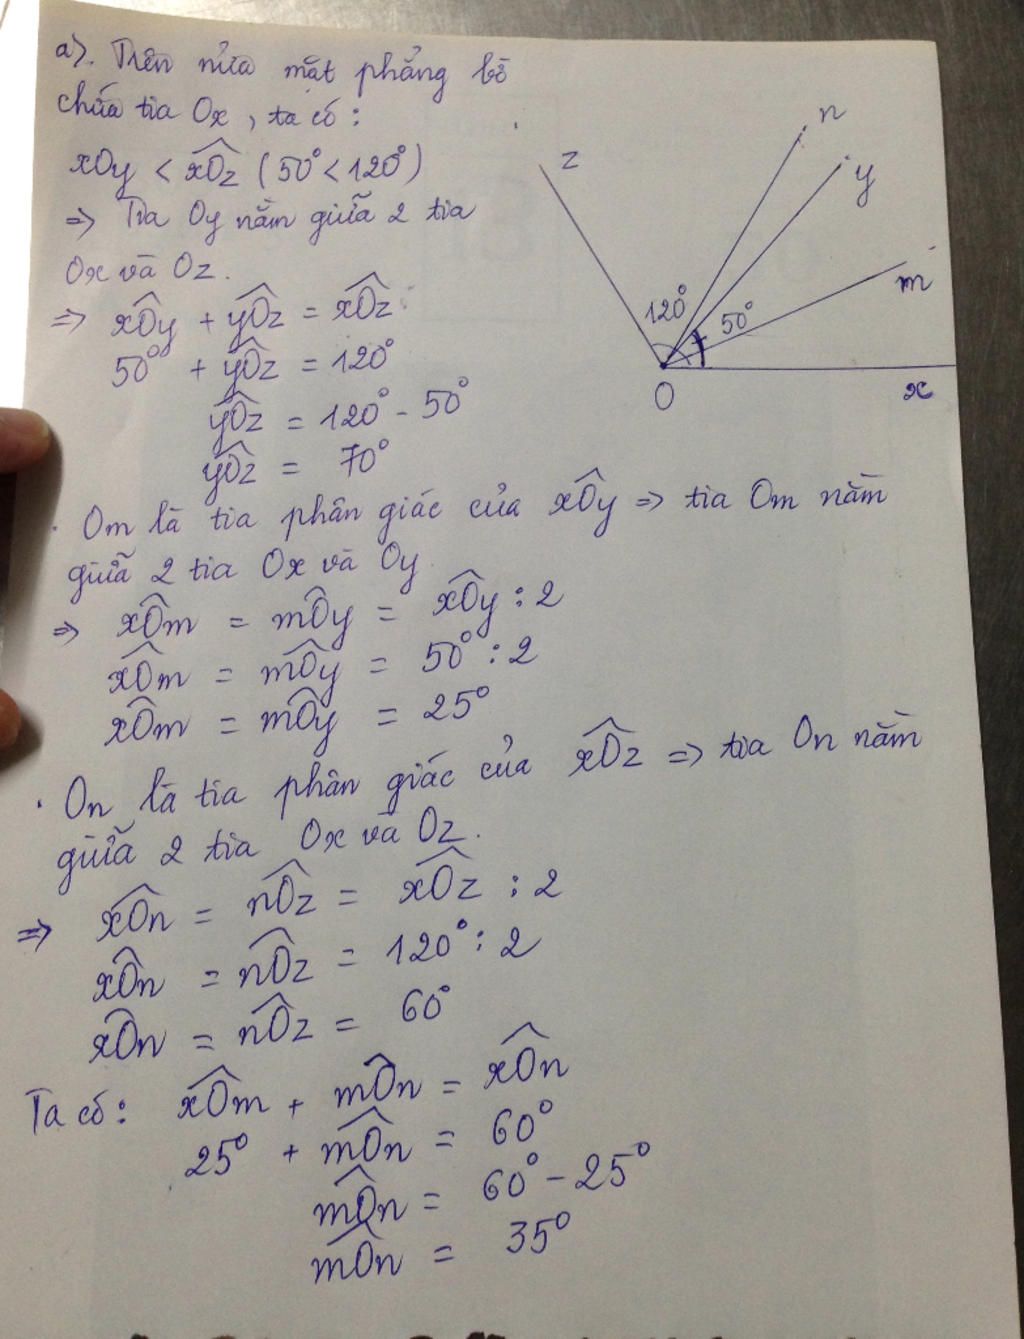 a). Trên nửa mặt phẳng bờ
chứa tia Ox, ta có:
xOy < xÔz (50° < 120°)
=> Tia Oy nằm giữa 2 tia
Ox và Oz.
=> xÔy + yÔz = xÔz
50° + yÔz = 120°
yÔz = 120° - 50°
yÔz = 70°
. Om là tia phân giác của xÔy => tia Om nằm
giữa 2 tia Ox và Oy
=> xÔm = mÔy = xÔy : 2
xÔm = mÔy = 50° : 2
xÔm = mÔy = 25°
. On là tia phân giác của xÔz => tia On nằm
giữa 2 tia Ox và Oz.
=> xÔn = nÔz = xÔz : 2
xÔn = nÔz = 120° : 2
xÔn = nÔz = 60°
Ta có: xÔm + mÔn = xÔn
25° + mÔn = 60°
mÔn = 60° - 25°
mÔn = 35°
z
n
y
m
120°
50°
O
x